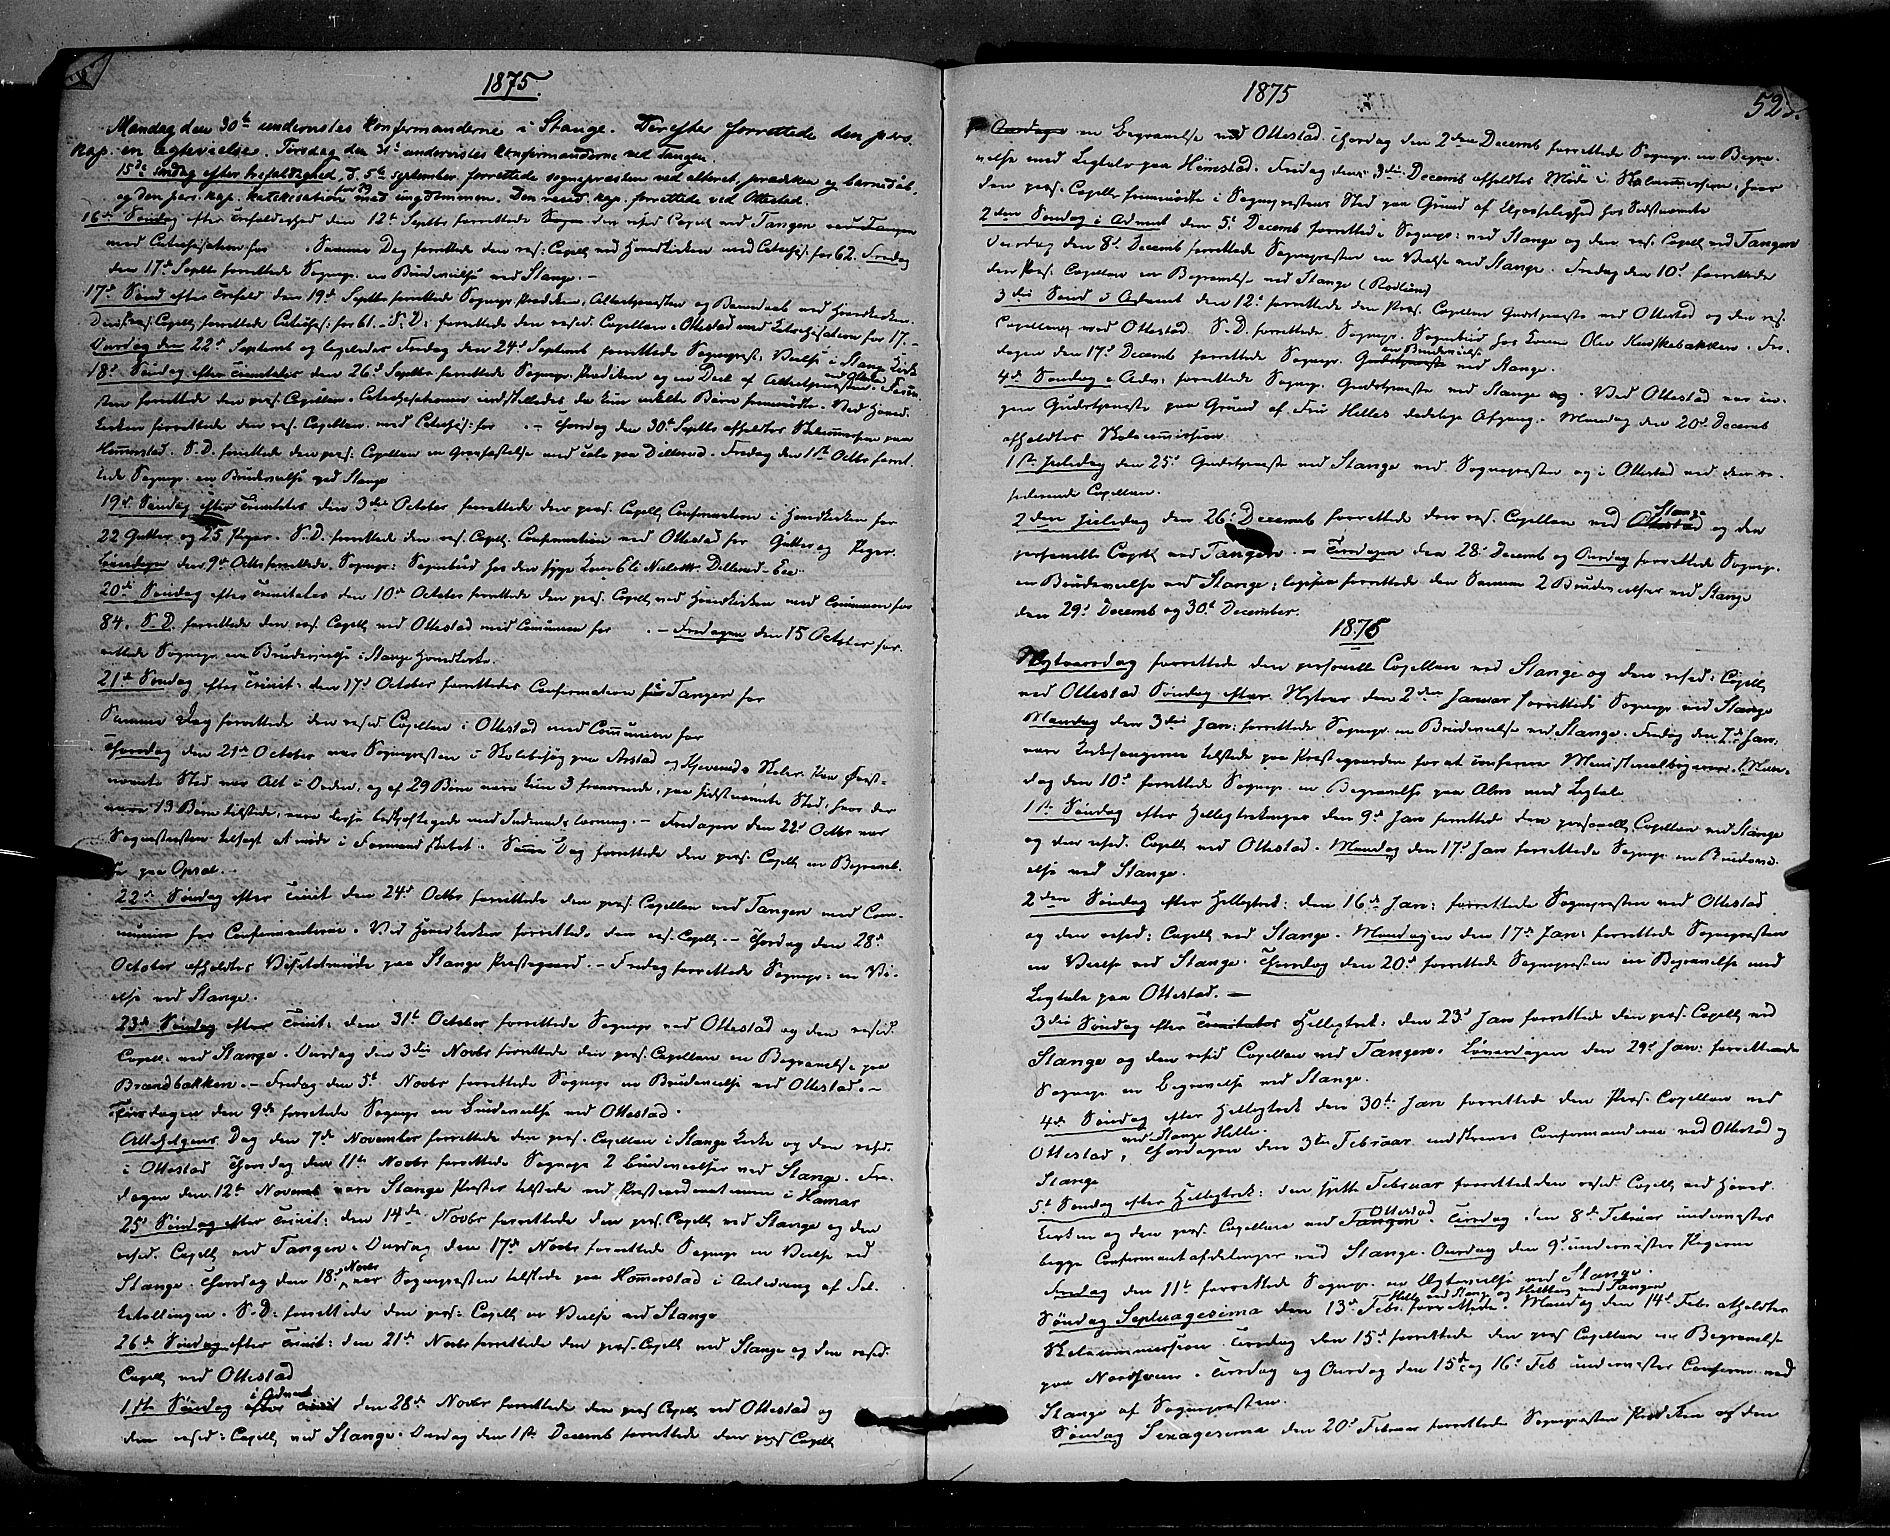 1875.
Mandag den 30te undervistes konfirmanderne i Stange. Derefter forrettede den pers.
kap. en begravelse. Tirsdag den 31te undervistes konfirmanderne ved Tangen.
15de søndag efter trefoldighed, d. 5te september, forrettede sognepræsten ved alteret, prædiken og barnedåb,
og den pers. kap. katekisation for 79 med ungdommen. Den resid. kap. forrettede ved Ottestad.
16de Søndag efter Trefoldighed den 12te Septbr forrettede Sogn den resd Capell ved Tangen ved Tangen
med Catechisation for . Samme Dag forrettede den res: Capell ved Hovedkirken med Catechis: for 62. Fredag
den 17de Septbr forrettede Sognepr. en Brudevielse ved Stange. –
17de Sønd efter Trefold den 19de Septbr forrettede Sognepr. Prædiken, Altertjenesten og Barnedaab ved Hovedkirken.
Den pers: Capell forrettede Catechis: for 61. – S. D: forrettede den resid. Capellan i Ottestad med Catechisation for 17. –
Onsdag den 22de Septemb og ligeledes Fredag den 24de Septemb forrettede Sognepræst. Vielse i Stange Kirke
18de Søndag efter Trinitatis den 26de Septbr forrettede Sognepr. Prædiken og en Deel af Altertjenesten ved Ottestad. Resten
forrettede den pers. Capellan. Catechisationen indstilledes da kun enkelte Børn fremmødte. Ved Hovedkirken
forrettede den res. Capellan med Catechis: for . – Thorsdag den 30te Septbr afholdtes Skolecommission paa
Hommerstad. S. D. forrettede den pers: Capellan en Gravfæstelse med Tale paa Dillerud. Fredag den 1ste Octbr forret
tede Sognepr. en Brudevielse ved Stange
19de Søndag efter Trinitatis den 3die October forrettede den pers. Capell Confirmation i Hovedkirken for
22 Gutter og 25 Piger. S. D. forrettede den res. Capell. Confirmation ved Ottestad for Gutter og Piger.
Løverdagen den 9de Octbr forrettede Sognepr: Sognebud hos den syge Kone Eli Nielsdtr. Dillerud-Eie.
20de Søndag efter Trinitatis den 10de October forrettede den pers. Capell ved Hovedkirken med Communion for
84. S. D. forrettede den res. Capell ved Ottestad med Communion for . – Fredagen den 15 October for-
rettede Sognepr. en Brudevielse i Stange Hovedkirke.
21de Søndag efter Trinit: den 17de October forrettedes Confirmation i Tangen for
Samme Dag forrettede den resid Capellan i Ottestad med Communion for
Thorsdag den 21de October var Sognepræsten i Skolebesøg paa Arstad og Skoler. Paa Først-
nævnte Sted var Alt i Orden, og af 29 Børn vare kun 3 fraværende, paa sidstnævnte Sted, hvor der
vare 13 Børn tilstede, vare disse beskjæftigede med Indenads læsning. – Fredagen den 22de Octbr var
Sognepræsten tilsagt at møde i Formandskabet. Samme Dag forrettede den pers. Capell en Begravel-
se paa Opsal. –
22de Søndag efter Trinit den 24de Octbr forrettede den pers Capellan ved Tangen med Com-
munion for Confirmanterne. Ved Hovedkirken forrettede den res. Capell. – Thorsdag den 28de
October afholdtes paa Stange Præstegaard. – Fredag forrettede Sognepr: en Vi-
else ved Stange.
23de Søndag efter Trinit: den 31te October forrettede Sognepr ved Ottestad og den resid.
Capell: ved Stange. Onsdag den 3die Novbr forrettede den pers. Capellan en Begravelse paa
Brændbakken. – Fredag den 5te Novbr forrettede Sognepr en Brudevielse ved Ottestad. –
Tirsdagen den 9de forrettede Sognepr en Brudevielse ved Ottestad.
Allehelgens Dag den 7de November forrettede den pers. Capellan i Stange Kirke og den resid.
i Ottestad Thorsdag den 11te Novbr forrettede Sognepr 2 Brudevielser ved Stange. Fre-
dagen den 12te Novemb vare Stange Præster tilstede ved Præsteordinationen i Hamar
25de Søndag efter Trinit: den 14de Novbr forrettede den pers. Capell ved Stange og den
resid. Capell ved Tangen. Onsdag den 17de Novbr forrettede Sognepr en Vielse ved
Stange. Thorsdag den 18de Novbr var Sognepræsten tilstede paa Hommerstad i Anledning af Fol-
ketællingen. S. D: forrettede den pers: Capell en Vielse ved Stange
26de Søndag efter Trinit: den 21de Novbr forrettede den pers. Capell ved Stange og den resid.
Capell ved Ottestad
1ste Søndag i Advent efter Trinit den 28de Novbr forrettede den pers Capell ved Ottestad og
den resid: Capell ved Stange. Onsdag den 1ste Decemb forrettede den pers Capell
1875
525.
en Begravelse ved Ottestad. Thorsdag den 2den Decemb forrettede Sognepr. en Begra-
velse med Ligtale paa Hemstad. Fredag den 3die Decemb afholdtes Møde i Skolecommission, hvor
den pers. Capell fremmødte i Sognepræstens Sted paa Grund af hos Sidstnævnte
2den Søndag i Advent den 5te Decemb forrettede Sognepr: ved Stange og den res. Capell ved Tangen
Onsdag den 8de Decemb forrettede Sognepræsten en Vielse ved Stange. Fredag den 10de forrettede
den Pers. Capellan en Begravelse ved Stange (Rodlund)
3die Sønd i Advent den 12te forrettede den Pers. Capellan Gudstjeneste ved Ottestad og den res.
Capellan ved Ottestad. S. D. forrettede Sognepr. Sognebud hos Kone Olea Kuskebakken. Fre-
dagen den 17de Decemb forrettede Sognepr. Gudstjeneste en Brudevielse ved Stange.
4de Søndag i Adv: forrettede Sognepr. Gudstjeneste ved Stange og . Ved Ottestad var in-
gen Gudstjeneste paa Grund af Fru Helles dødelige Afgang. Mandag den 20de Decemb
afholdtes Skolecommission.
1ste Juledag den 25de Gudstjeneste ved Stange ved Sognepræsten og i Ottestad ved den re-
siderende Capellan.
2den Juledag den 26de Decemb forrettede den res. Capellan ved Ottestad Stange og den
personelle Capell ved Tangen. – Tirsdagen den 28de Decemb og Onsdag forrettede Sognepr.
en Brudevielse ved Stange; ligesom forrettede den Samme 2 Brudevielser ved Stange
den 29de Decemb og 30te December.
1876
Nytaarsdag forrettede den personelle Capellan ved Stange og den resid: Capell
ved Ottestad Søndag efter Nytaar den 2den Januar forrettede Sognepr ved Stange
Mandag den 3die Jan: forrettede Sognepr. en Brudevielse ved Stange. Fredag den 7de Jan:
vare Kirkesangerne tilstede paa Præstegaarden for at conferere Ministerialbøgerne. Man-
dag den 10de forrettede Sognepr. en Begravelse paa Alm med Ligtale
1ste Søndag efter Helligtrekonger den 9de Jan forrettede den personelle Capellan ved Stange
og den resid. Capell ved Ottestad. Mandag den 17de Jan forrettede Sognepr en Brudevi-
else ved Stange.
2den Søndag efter Helligtrek: den 16de Jan: forrettede Sognepræsten ved Ottestad
og den resid: Capell ved Stange. Mandagen den 17de Jan: forrettede Sognepræsten
en Vielse ved Stange. Thorsdag den 20de forrettede Sognepræsten en Begravelse med
Ligtale paa Ottestad. –
3die Søndag efter Trinitatis Helligtrek: den 23de Jan forrettede den pers. Capell ved
Stange og den resid Capellan ved Tangen. Løverdagen den 29de Jan: forrettede
Sognepr en Begravelse ved Stange.
4de Søndag efter Helligtrek den 30te Jan forrettede den Pers. Capellan ved
Ottestad, ved Stange Helle. Thorsdagen den 3die Februar undervistes Confirmanderne ved Ottestad og
Stange
5te Søndag efter Helligtrek: den sjette Februar forrettede den resid. Capell ved Hoved-
kirken og den pers. Capellan ved Tangen Ottestad. Tirsdag den 8de Februar undervistes
begge Confirmantafdelinger ved Stange. Onsdag den 9de undervistes Pigerne
Fredag den 11te forrettede Sognepr. en Ægtevielse ved Stange.
Søndag Septuagesima den 13de Febr. forrettede Helle ved Stange og ved Tangen. Mandag den 14de Febr afholdtes
Skolecommission. Tirsdag den 15de forrettede den pers Capellan en Begravelse
paa Nordhuus. Tirsdag og Onsdag den 15de og 16de Feb undervistes Confirm. ved
Stange af Sognepræsten.
Søndag Sexagesima den 20de Februar forrettede Sognepræsten Prædiken og den